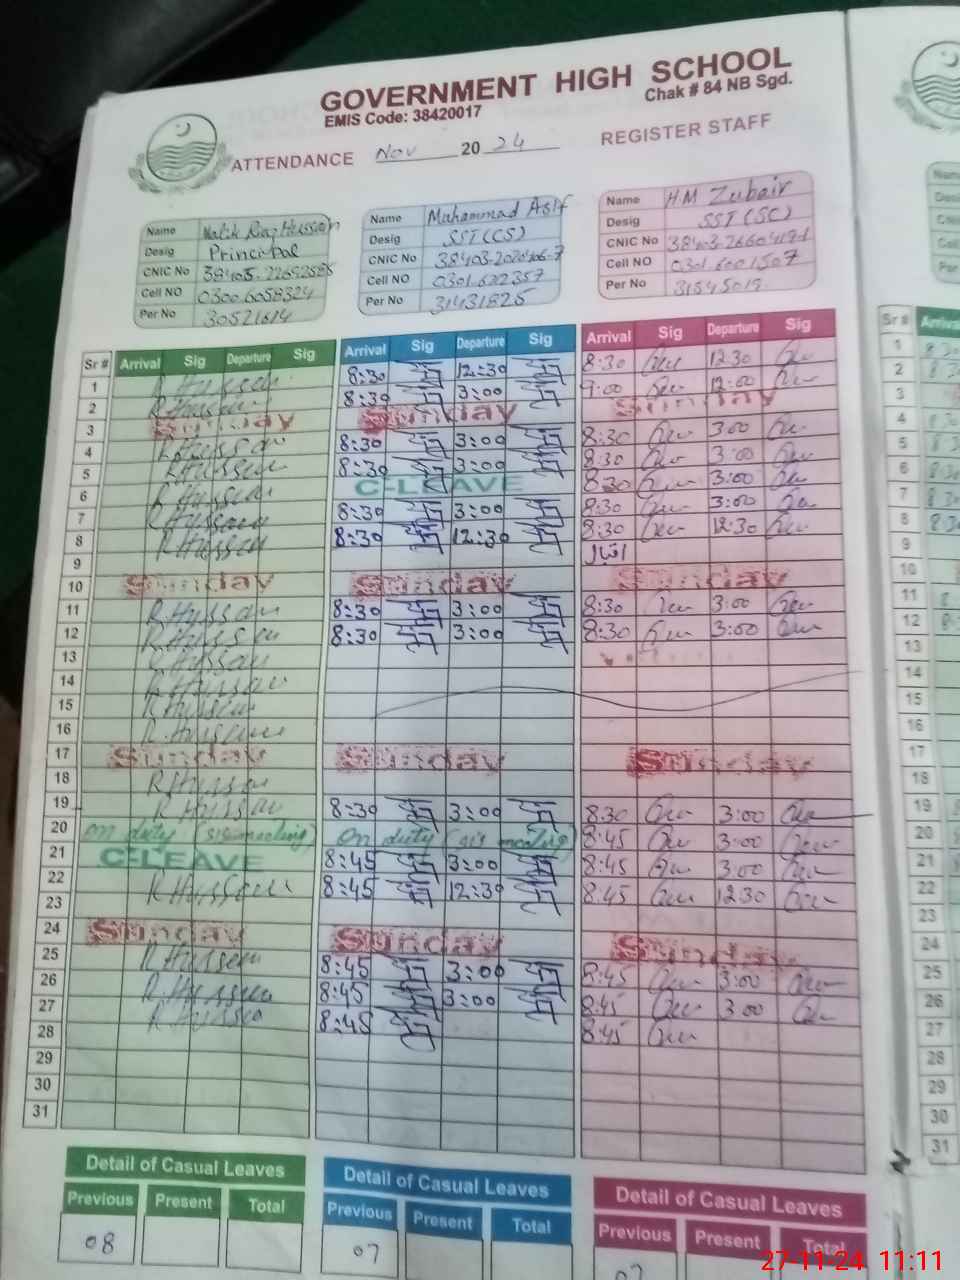 GOVERNMENT HIGH SCHOOL
Chak # 84 NB Sgd.
EMIS Code: 38420017
ATTENDANCE Nov 20 24 REGISTER STAFF
Name Malik Riaz Hussain
Desig Principal
CNIC No
Cell NO 0300 6058324
Per No 30521614
Name Muhammad Asif
Desig SST (CS)
CNIC No
Cell NO
Per No 31431825
Name H.M Zubair
Desig SST (SC)
CNIC No
Cell NO 0301 6001507
Per No
Sr # Arrival Sig Departure Sig Arrival Sig Departure Sig Arrival Sig Departure Sig Sr #
1 R Hussain 8:30 12:30 8:30 12:30 1
2 R Hussain 8:30 3:00 9:00 12:00 2
3 Sunday Sunday Sunday 3
4 R Hussain 8:30 3:00 8:30 3:00 4
5 R Hussain 8:30 3:00 8:30 3:00 5
6 R Hussain C-LEAVE 8:30 3:00 6
7 R Hussain 8:30 3:00 8:30 3:00 7
8 R Hussain 8:30 12:30 8:30 12:30 8
9 9
10 Sunday Sunday Sunday 10
11 R Hussain 8:30 3:00 8:30 3:00 11
12 R Hussain 8:30 3:00 8:30 3:00 12
13 R Hussain 13
14 R Hussain 14
15 R Hussain 15
16 R Hussain 16
17 Sunday Sunday Sunday 17
18 R Hussain 18
19 R Hussain 8:30 3:00 8:30 3:00 19
20 on duty on duty 8:45 3:00 20
21 C-LEAVE 8:45 3:00 8:45 3:00 21
22 R Hussain 8:45 12:30 8:45 12:30 22
23 23
24 Sunday Sunday Sunday 24
25 R Hussain 8:45 3:00 8:45 3:00 25
26 R Hussain 8:45 3:00 8:45 3:00 26
27 R Hussain 8:45 8:45 27
28 28
29 29
30 30
31 31
Detail of Casual Leaves Detail of Casual Leaves Detail of Casual Leaves
Previous Present Total Previous Present Total Previous Present Total
08 07
27-11-24 11:11